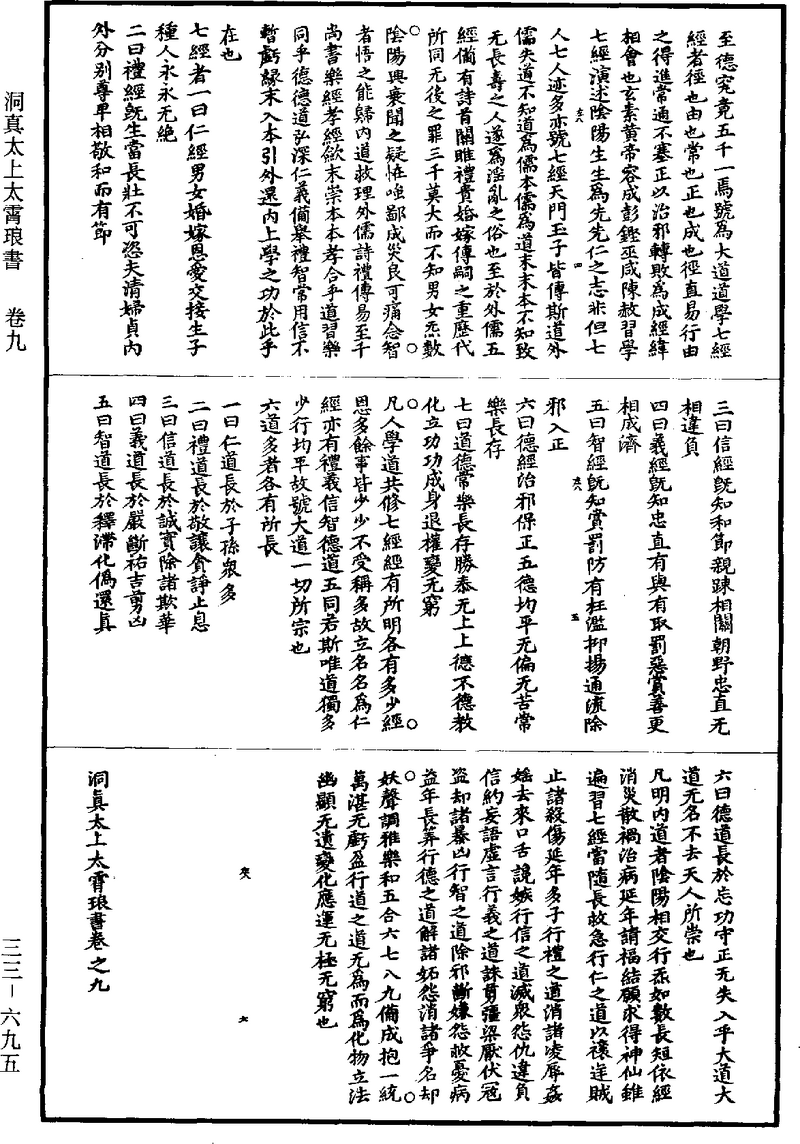 至德究竟五千一焉號為大道道學七經
經者徑也由也常也正也成也徑直易行由
之得進常通不塞正以治邪轉敗為成經緯
相會也玄素黃帝容成彭鏗巫咸陳赦習學
七經演述陰陽生生為先先仁之志非但七
人七人迹多亦號七經天門玉子皆傳斯道外
儒失道不知道為儒本儒為道末末本不知致
无長壽之人遂為淫亂之俗也至於外儒五
經備有詩首關雎禮貴婚嫁傳嗣之重歷代
所同无後之罪三千莫大而不知男女炁數
陰陽興衰聞之疑怪嗤鄙成災良可痛念智
者悟之能歸內道救理外儒詩禮傳易至千
尚書樂經孝經歛末崇本本孝合乎道習樂
同乎德德道弘深仁義備舉禮智常用信不
暫虧緣末入本引外還內上學之功於此乎
在也
七經者一曰仁經男女婚嫁恩愛交接生子
種人永永无絕
二曰禮經既生當長壯不可恣夫清婦貞內
外分別尊卑相敬和而有節
三曰信經既知和節親踈相關朝野忠直无
相違負
四曰義經既知忠直有與有取罰惡賞善更
相成濟
五曰智經既知賞罰防有枉濫抑揚通流除
邪入正
六曰德經治邪保正五德均平无偏无苦常
樂長存
七曰道德常樂長存勝泰无上上德不德教
化立功功成身退權變无窮
凡人學道共修七經經有所明各有多少經
恩多餘事皆少少不受稱多故立名名為仁
經亦有禮義信智德道五同若斯唯道獨多
少行均平故號大道一切所宗也
六道多者各有所長
一曰仁道長於子孫衆多
二曰禮道長於敬讓貪諍止息
三曰信道長於誠實除諸欺華
四曰義道長於嚴斷祐吉剪凶
五曰智道長於釋滯化偽還真
六曰德道長於忘功守正无失入乎大道大
道无名不去天人所崇也
凡明內道者陰陽相交行炁如數長短依經
消災散禍治病延年請福結願求得神仙雖
遍習七經當隨長救急行仁之道以禳逆賊
止諸殺傷延年多子行禮之道消諸凌辱姦
婬去來口舌說嫉行信之道滅衆怨仇違負
信約妄語虛言行義之道誅剪彊梁厭伏寇
盜却諸暴凶行智之道除邪斷嫌怨救憂病
益年長筭行德之道解諸妬怨消諸爭名却
妖聲調雅樂和五合六七八九備成抱一統
萬湛无虧盈行道之道无為而為化物立法
幽顯无遺變化應運无極无窮也
洞真太上太霄琅書卷之九
洞真太上太霄琅書　卷九
三三－六九五